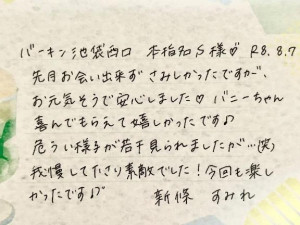 バーキン池袋西口 本指名S様♡ R8.8.7
先月お会い出来ずさみしかったですが、
お元気そうで安心しました♡ バニーちゃん
喜んでもらえて嬉しかったです♪
危うい様子が若干見られましたが…(笑)
我慢してたさり素敵でした!今回も楽し
かったです♪ 新條 すみれ